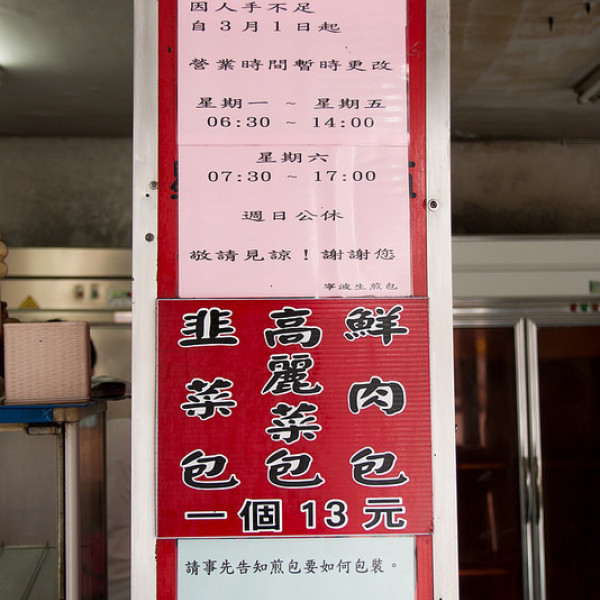 因人手不足
自3月1日起
營業時間暫時更改
星期一 ~ 星期五
06:30 ~ 14:00
星期六
07:30 ~ 17:00
週日公休
敬請見諒！謝謝您
寧波生煎包
鮮肉包
高麗菜包
韭菜包
一個13元
請事先告知煎包要如何包裝。